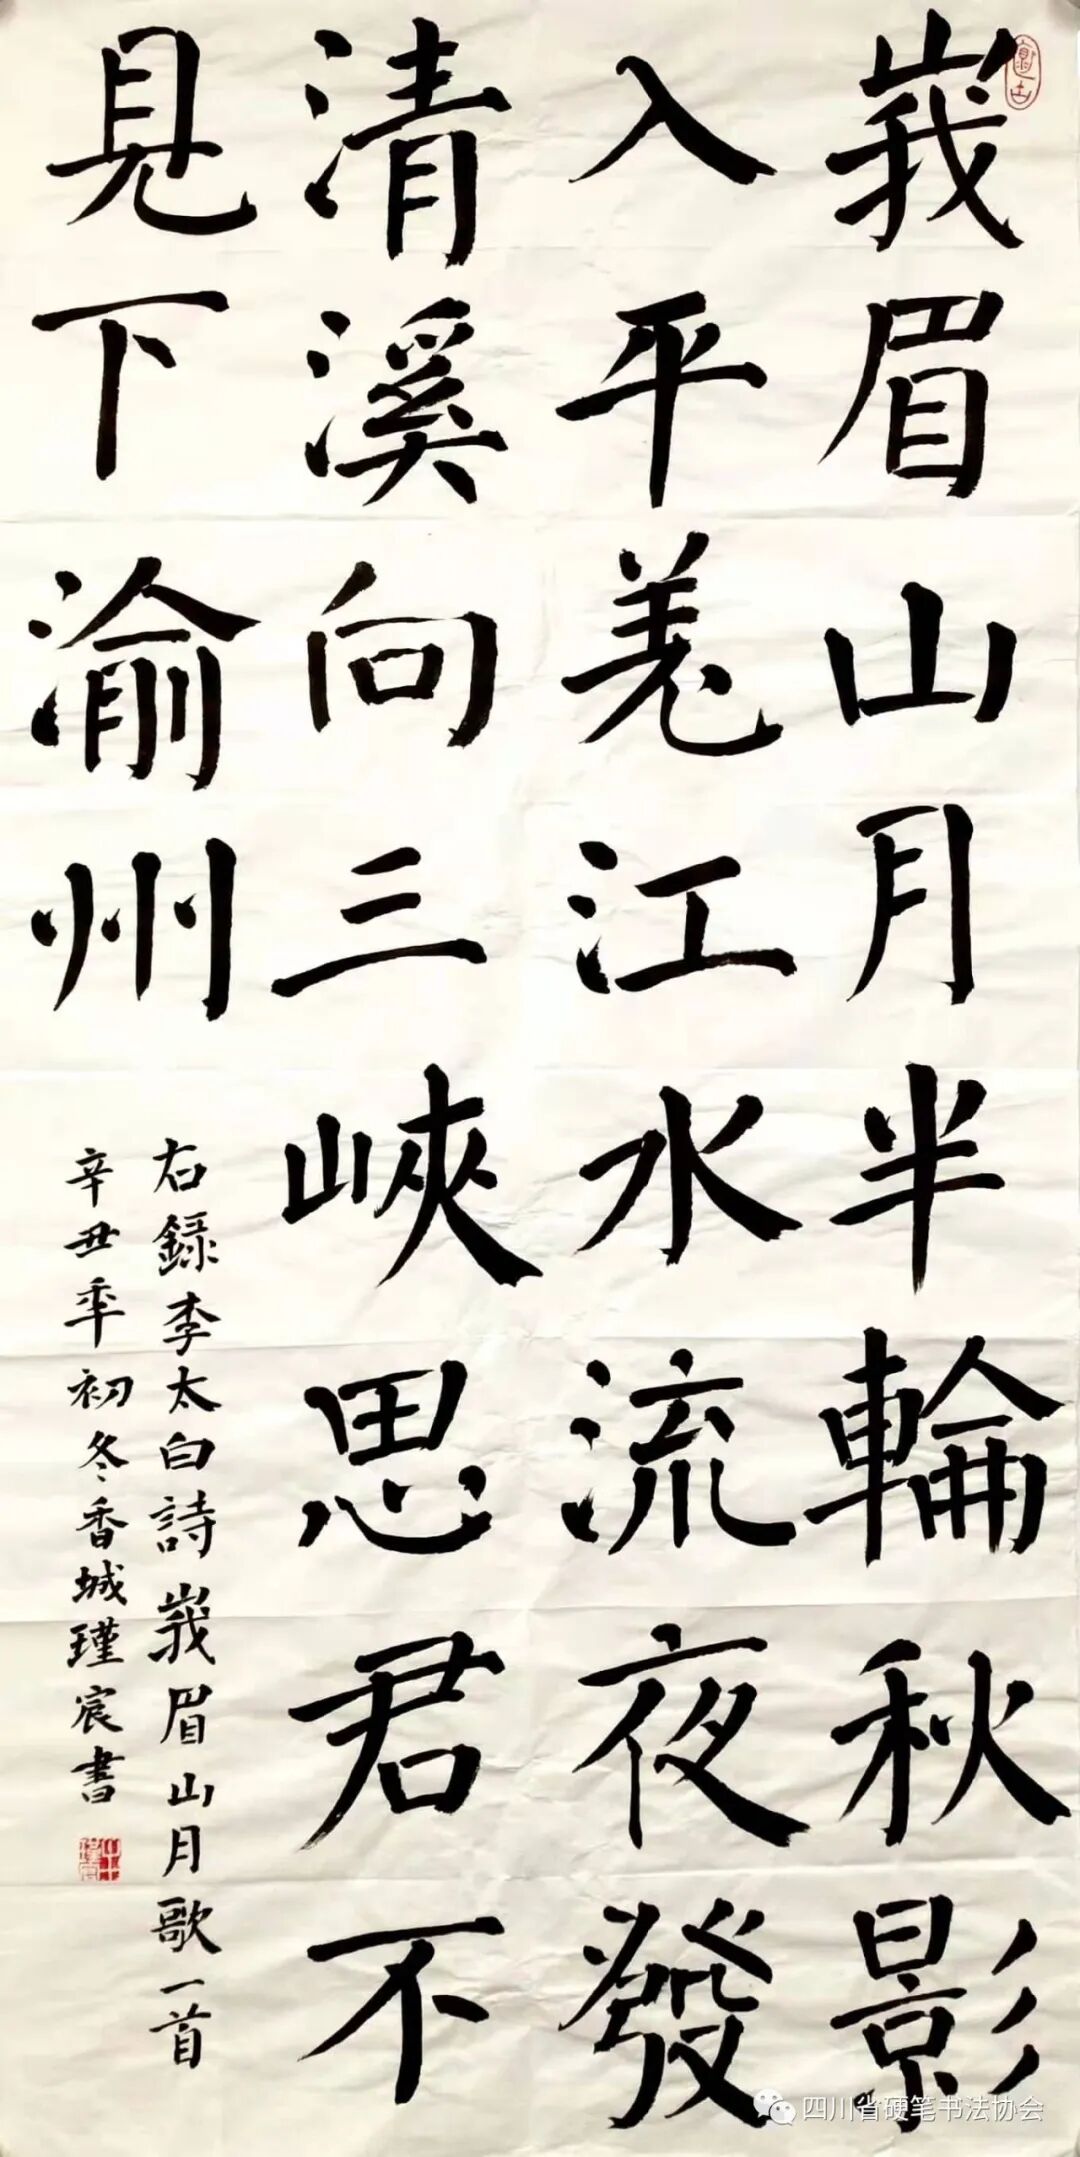 峩眉山月半輪秋影
入平羌江水流夜發
清溪向三峽思君不
見下渝州
右錄李太白詩峩眉山月歌一首
辛丑年初冬香城瑾宸書
四川省硬笔书法协会